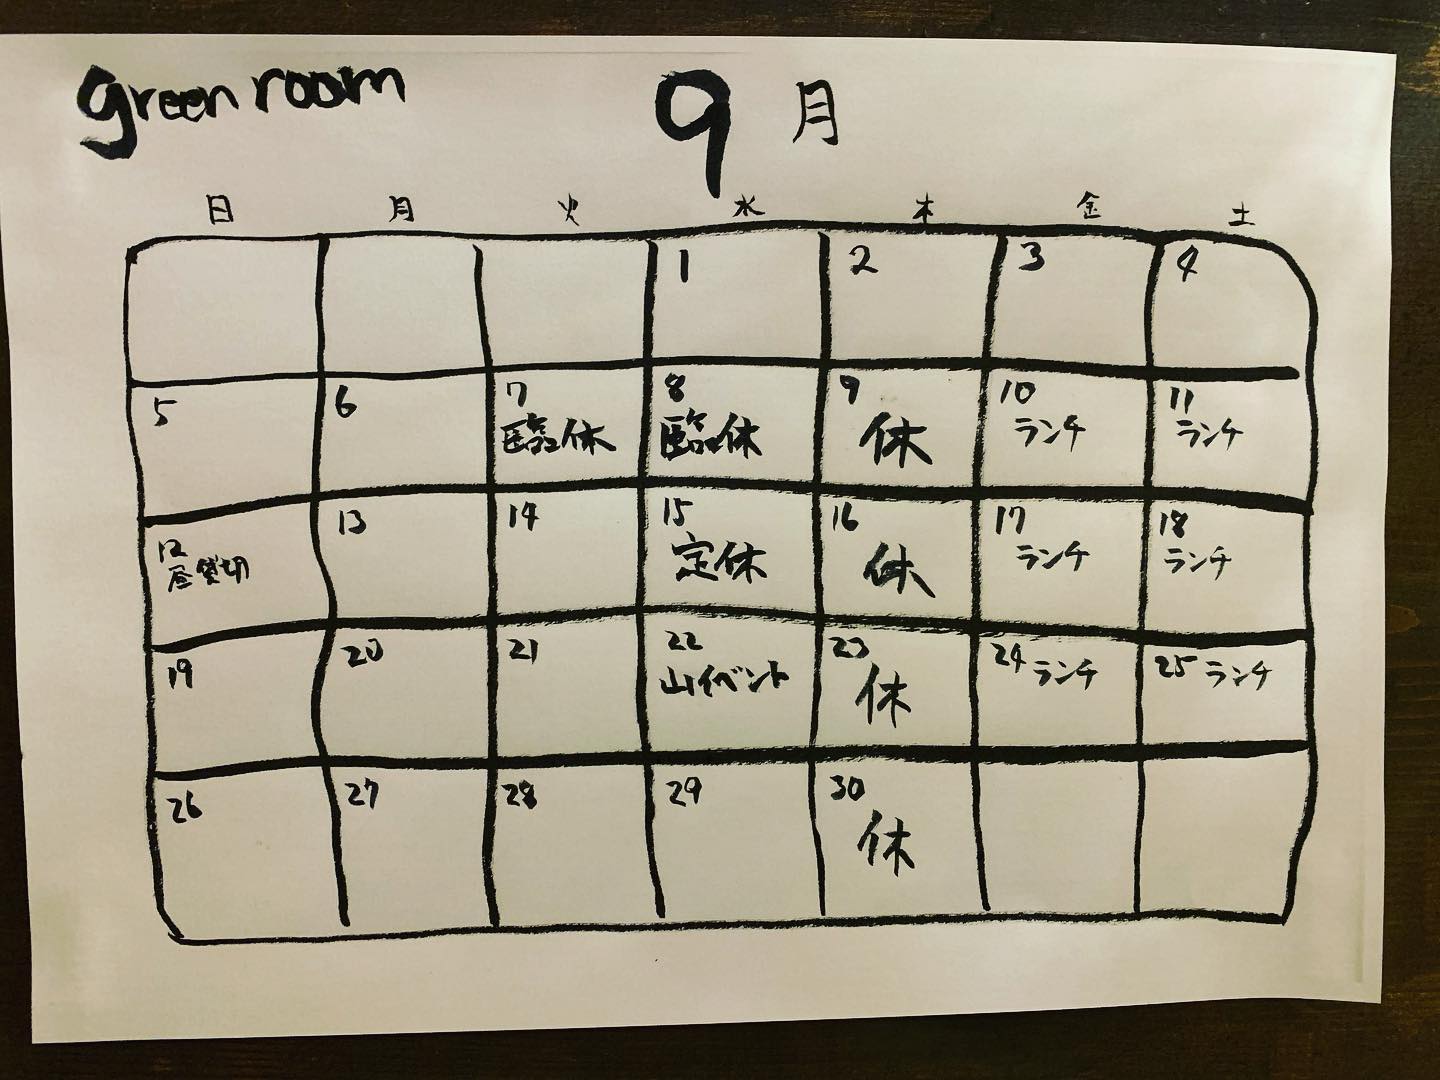 green room
9月
日 月 火 水 木 金 土
1 2 3 4
5 6 7 8 9 10 11
臨休 臨休 休 ランチ ランチ
12 13 14 15 16 17 18
昼貸切 定休 休 ランチ ランチ
19 20 21 22 23 24 ランチ 25 ランチ
山イベント 休
26 27 28 29 30
休